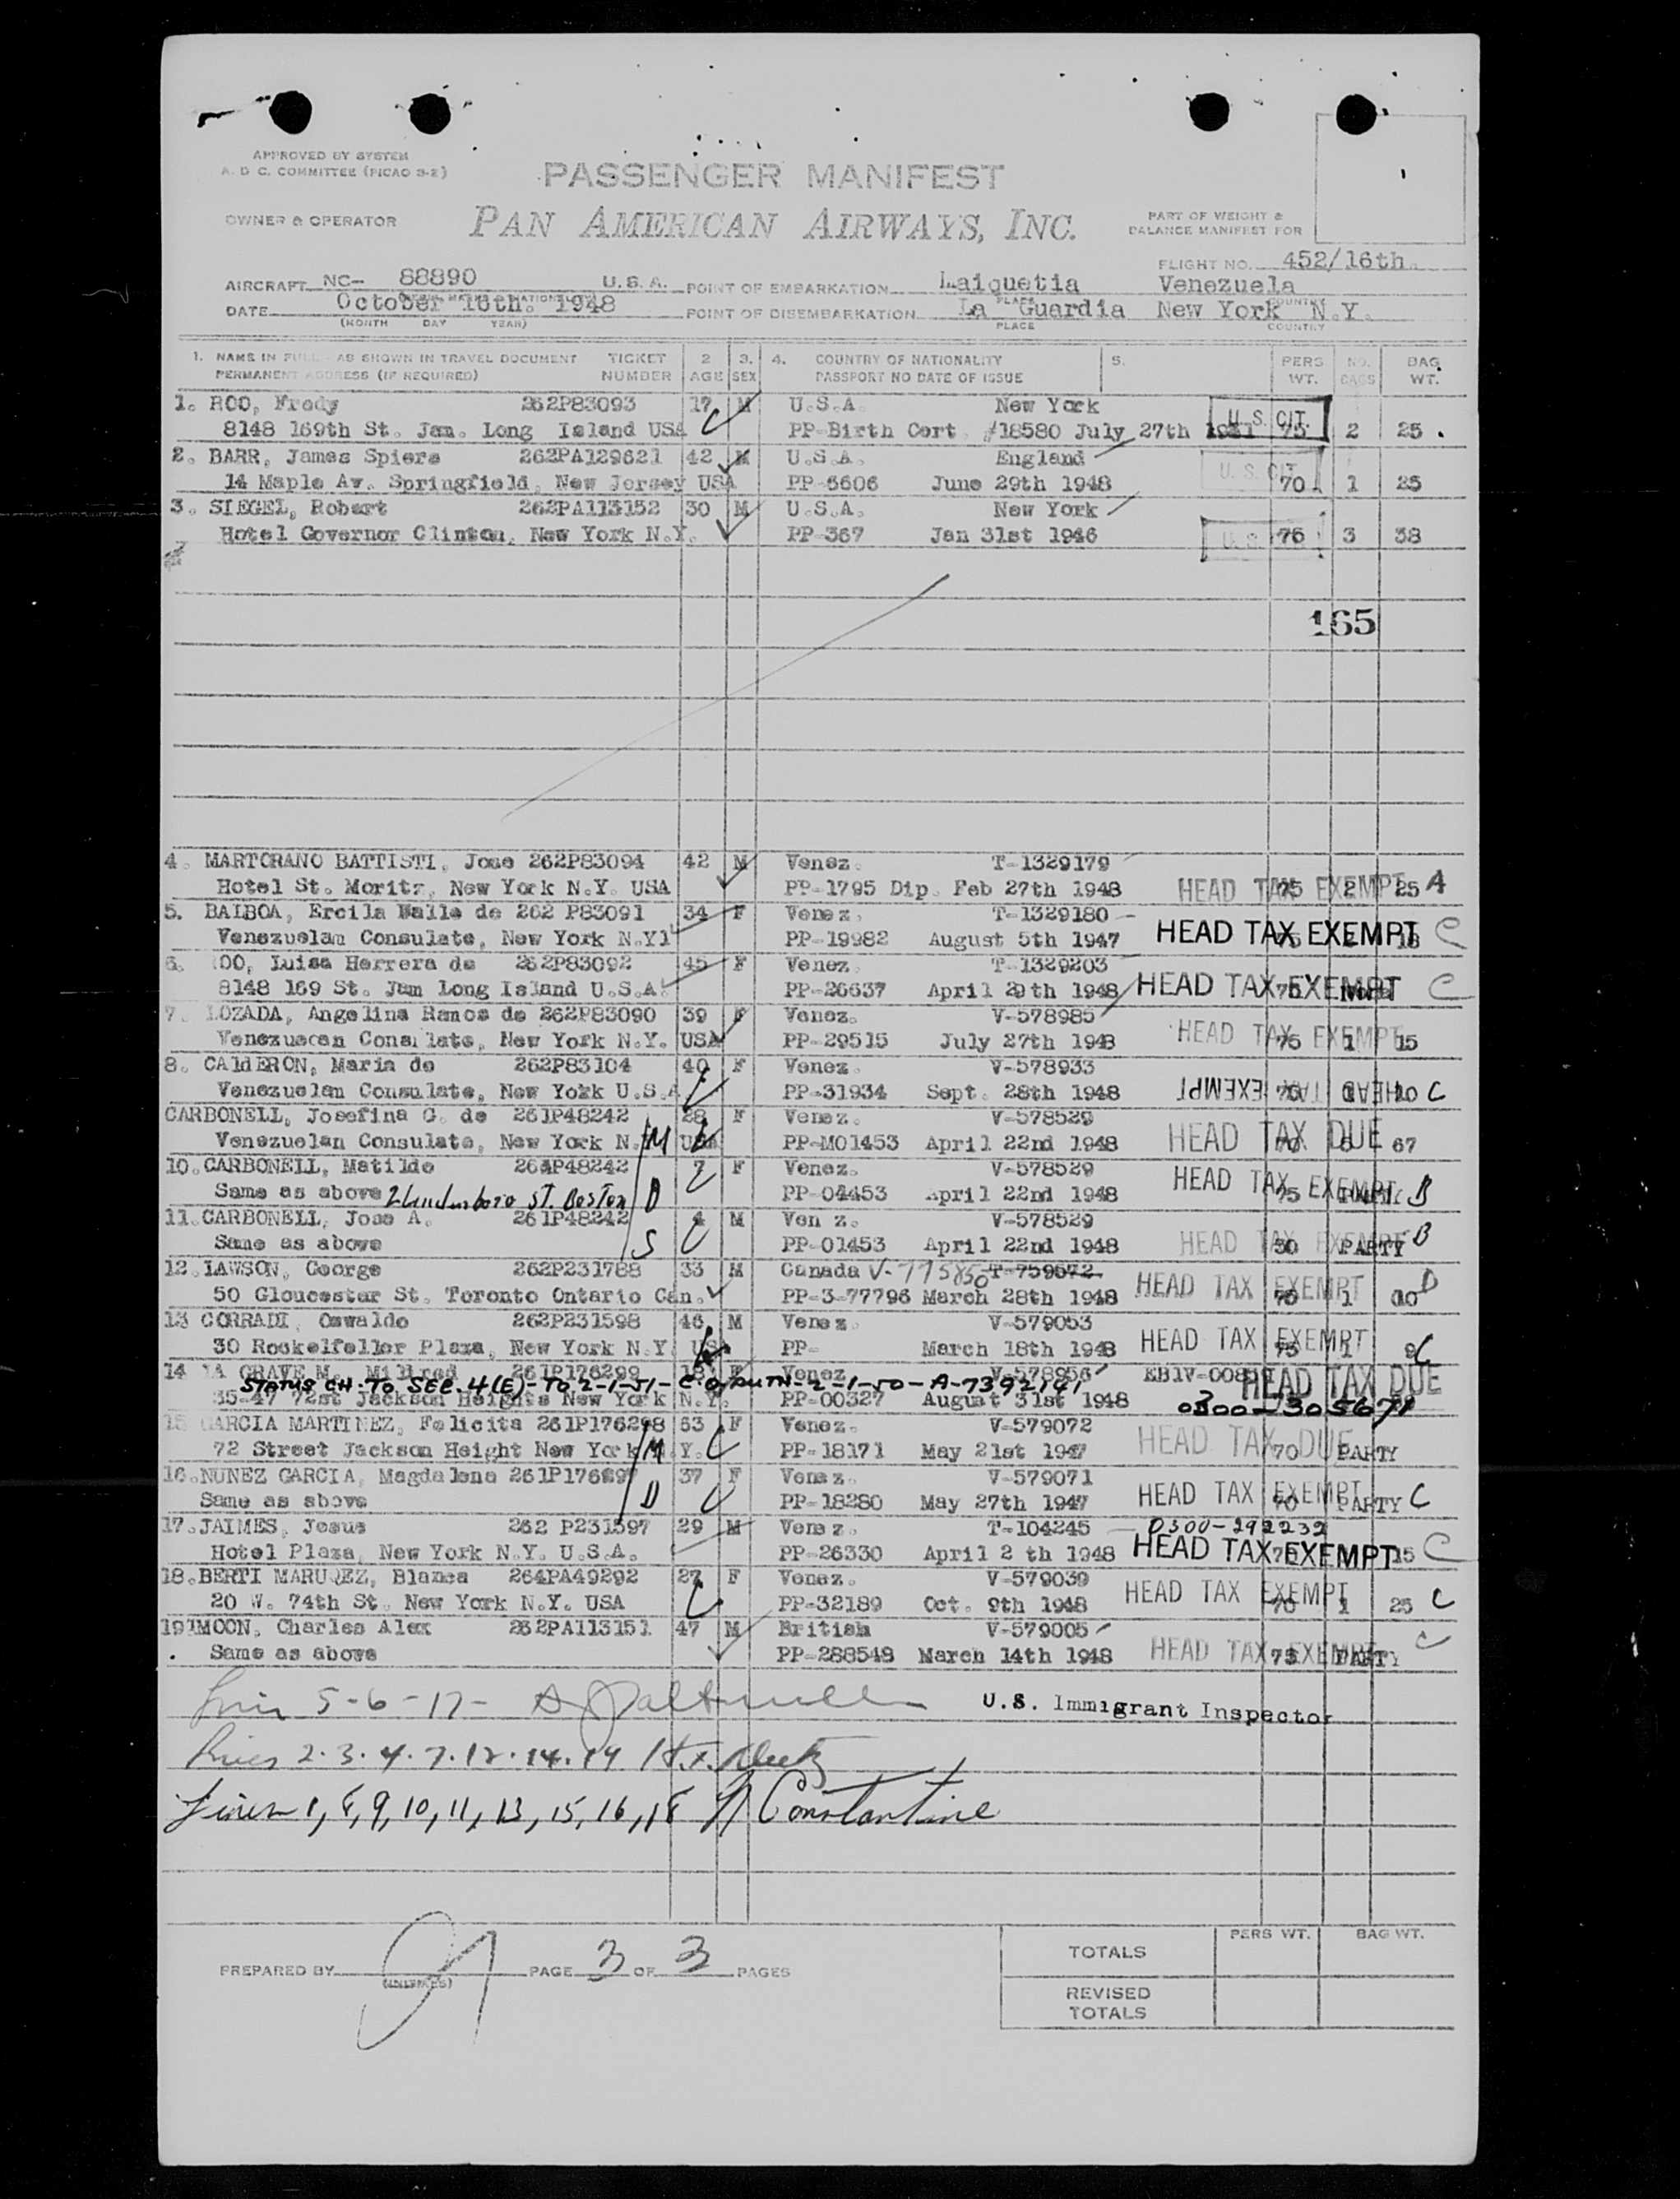 APPROVED BY SYSTEM
A. D C. COMMITTEE (PICAO 3-2)
PASSENGER MANIFEST
OWNER & OPERATOR PAN AMERICAN AIRWAYS, INC.
PART OF WEIGHT &
BALANCE MANIFEST FOR
FLIGHT NO. 452/16th.
AIRCRAFT NC- 88890 U.S.A. POINT OF EMBARKATION Laiquetia Venezuela
PLACE COUNTRY
DATE October 16th. 1948 POINT OF DISEMBARKATION La Guardia New York N.Y.
(MONTH DAY YEAR) PLACE COUNTRY
1. NAME IN FULL AS SHOWN IN TRAVEL DOCUMENT TICKET 2 3. 4. COUNTRY OF NATIONALITY 5. PERS NO. BAG
PERMANENT ADDRESS (IF REQUIRED) NUMBER AGE SEX PASSPORT NO DATE OF ISSUE WT. BAGS WT.
1. ROO, Fredy 262P83093 17 M U.S.A. New York
8148 169th St. Jam. Long Island USA PP-Birth Cert. #18580 July 27th 1931 U.S. CIT. 75 2 25
2. BARR, James Spiers 262PA129621 42 M U.S.A. England
14 Maple Av. Springfield, New Jersey USA PP-6606 June 29th 1948 U.S. CIT. 70 1 25
3. SIEGEL, Robert 262PA113152 30 M U.S.A. New York
Hotel Governor Clinton, New York N.Y. PP-367 Jan 31st 1946 U.S. 76 3 38
165
4. MARTORANO BATTISTI, Jose 262P83094 42 M Venez. T-1329179
Hotel St. Moritz, New York N.Y. USA PP-1795 Dip. Feb 27th 1948 HEAD TAX EXEMPT 75 2 25 A
5. BALBOA, Ercila Valle de 262 P83091 34 F Venez. T-1329180
Venezuelan Consulate, New York N.Y PP-19982 August 5th 1947 HEAD TAX EXEMPT 18 C
6. OO, Luisa Herrera de 262P83092 45 F Venez. T-1329203
8148 169 St. Jam Long Island U.S.A. PP-26637 April 29th 1948 HEAD TAX EXEMPT 75 C
7. LOZADA, Angelina Ramos de 262P83090 39 F Venez. V-578985
Venezuecan Consulate, New York N.Y. USA PP-29515 July 27th 1948 HEAD TAX EXEMPT 75 1 15
8. CAldERON, Maria de 262P83104 40 F Venez. V-578933
Venezuelan Consulate, New York U.S.A PP-31934 Sept. 28th 1948 HEAD TAX EXEMPT C
CARBONELL, Josefina C. de 261P48242 28 F Venez. V-578529
Venezuelan Consulate, New York N. M USA PP-M01453 April 22nd 1948 HEAD TAX DUE 70 5 67
10. CARBONELL, Matilde 261P48242 7 F Venez. V-578529
Same as above St. Boston D PP-04453 April 22nd 1948 HEAD TAX EXEMPT B
11. CARBONELL, Jose A. 261P48242 4 M Ven z. V-578529
Same as above S PP-01453 April 22nd 1948 HEAD TAX EXEMPT 30 PARTY B
12. LAWSON, George 262P231788 33 M Canada V-775850 T-759672
50 Gloucester St. Toronto Ontario Can. PP-3-77796 March 28th 1948 HEAD TAX EXEMPT 75 1 D
13 CORRADI, Oswaldo 262P231598 46 M Venez. V-579053
30 Rockelfeller Plaza, New York N.Y. USA PP- March 18th 1948 HEAD TAX EXEMPT 75 1 C
14 LA GRAVE M., Mildred 261P176299 18 F Venez. V-578956 EB1V-008
STATUS CH. TO SEC. 4(E)- TO 2-1-51- C.O. AUTH-2-1-50-A-7392141 HEAD TAX DUE
35-47 72st Jackson Heights New York N.Y. PP-00327 August 31st 1948 0300-305671
15 GARCIA MARTINEZ, Felicita 261P176298 53 F Venez. V-579072
72 Street Jackson Height New York M Y. PP-18171 May 21st 1947 HEAD TAX DUE 70 PARTY
16. NUNEZ GARCIA, Magdalena 261P176297 37 F Venez. V-579071
Same as above D PP-18280 May 27th 1947 HEAD TAX EXEMPT 70 PARTY C
17. JAIMES, Jesus 262 P231597 29 M Venez. T-104245 0300-292232
Hotel Plaza, New York N.Y. U.S.A. PP-26330 April 2 th 1948 HEAD TAX EXEMPT 15 C
18. BERTI MARUQEZ, Blanca 264PA49292 27 F Venez. V-579039
20 W. 74th St. New York N.Y. USA PP-32189 Oct. 9th 1948 HEAD TAX EXEMPT 70 1 25 C
19 MOON, Charles Alex 262PA113151 47 M British V-579005
Same as above PP-288548 March 14th 1948 HEAD TAX EXEMPT 75 PARTY C
5-6-17- U.S. Immigrant Inspector
Lines 2.3.4.7.12.14.19
Lines 1, 8, 9, 10, 11, 13, 15, 16, 18 Constantine
PREPARED BY (INITIALS) PAGE 3 OF 3 PAGES
PERS WT. BAG WT.
TOTALS
REVISED
TOTALS